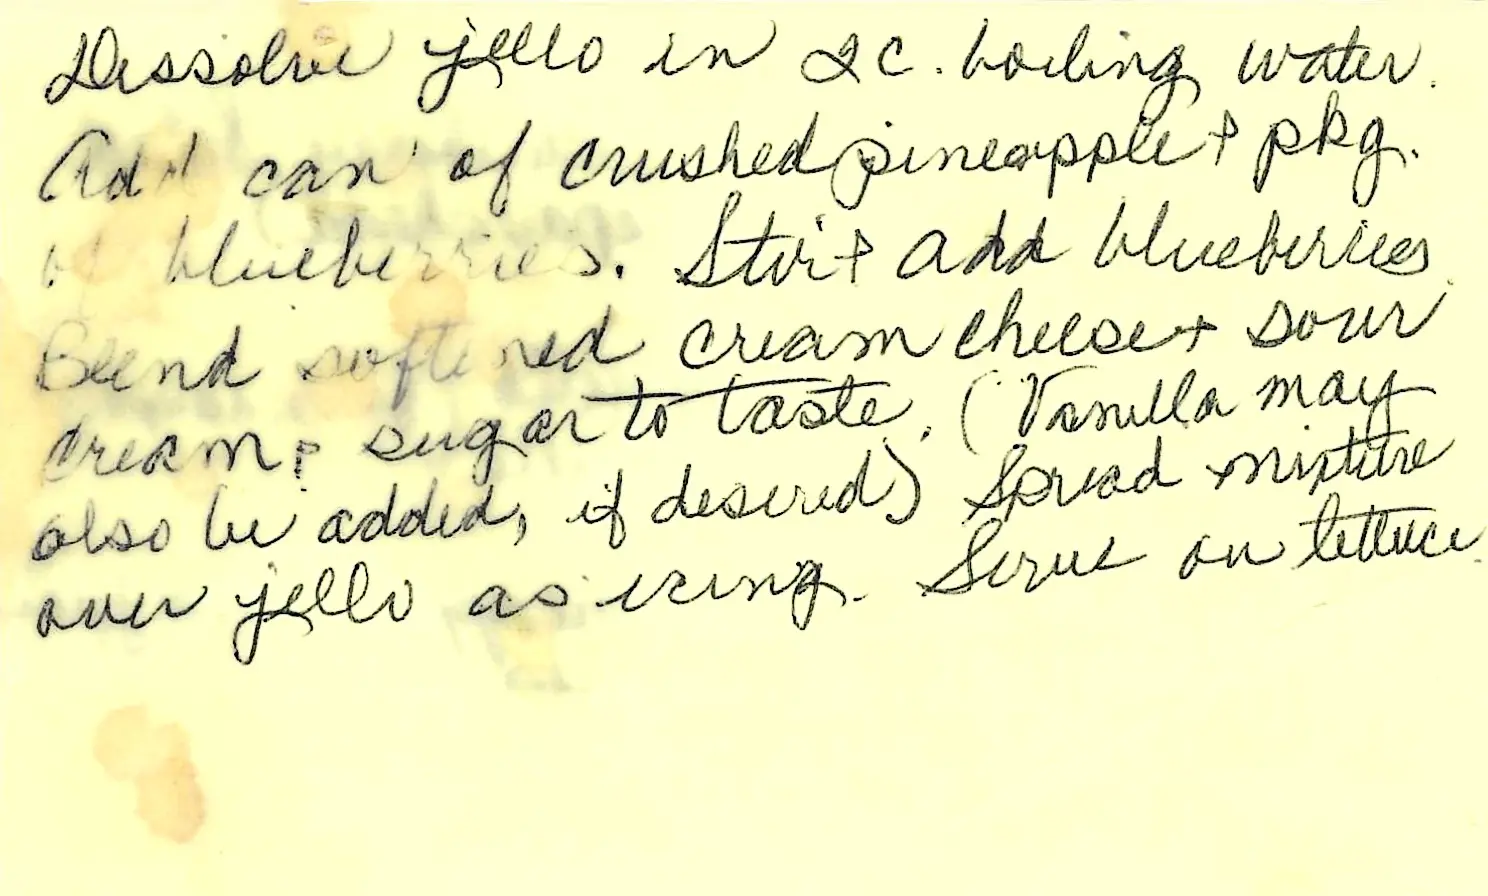 Dissolve jello in 2 c. boiling water.
Add can of crushed pineapple + pkg.
of blueberries. Stir + add blueberries.
Blend softened cream cheese + sour
cream + sugar to taste. (Vanilla may
also be added, if desired) Spread mixture
over jello as icing. Serve on lettuce.